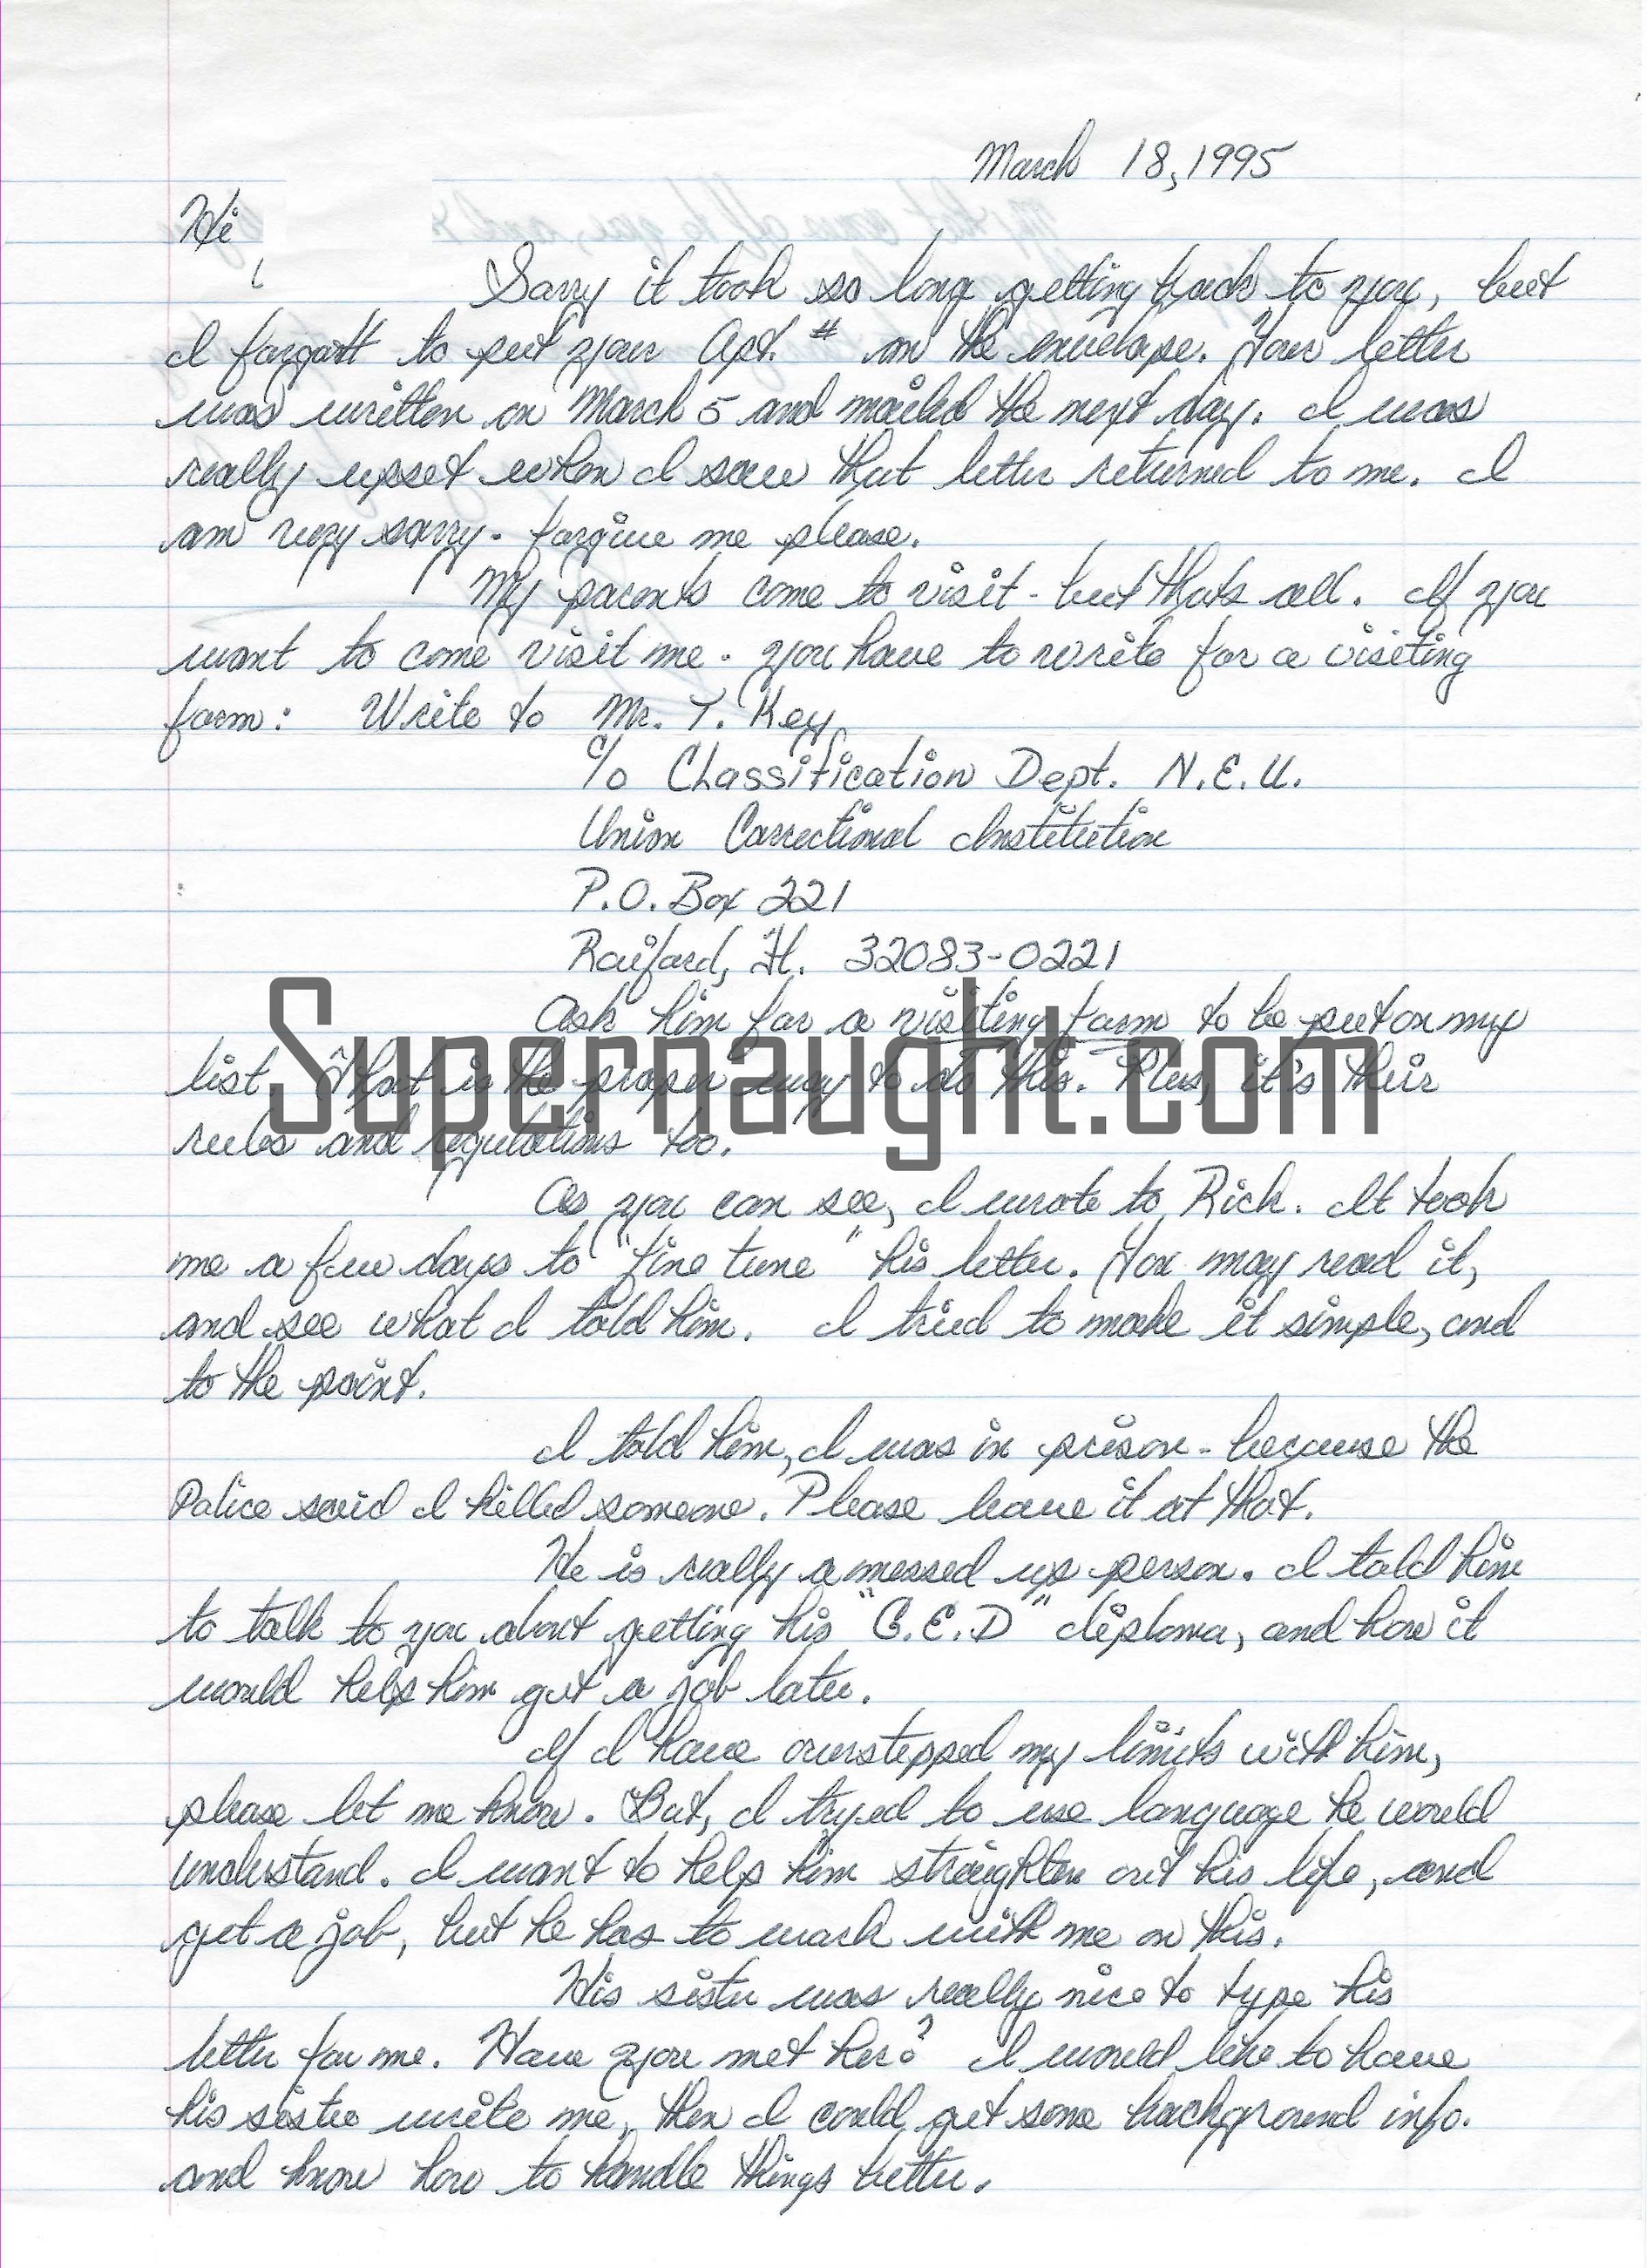 March 18, 1995
Hi
,
Sorry it took so long getting back to you, but
I forgott to put your Apt. # on the envelope. Your letter
was written on March 5 and mailed the next day. I was
really upset when I saw that letter returned to me. I
am very sorry. forgive me please.
My parents come to visit - but thats all. If you
want to come visit me - you have to write for a visiting
form: Write to Mr. T. Key
c/o Classification Dept. N.E.U.
Union Correctional Institution
P.O. Box 221
Raiford, Fl. 32083-0221
Ask him for a visiting form to be put on my
list. That is the proper way to do this. Plus, it's their
rules and regulations too.
Supernaught.com
As you can see, I wrote to Rich. It took
me a few days to "fine tune" his letter. You may read it,
and see what I told him. I tried to make it simple, and
to the point.
I told him, I was in prison - because the
Police said I killed someone. Please leave it at that.
He is really a messed up person. I told him
to talk to you about getting his "G.E.D" diploma, and how it
would help him get a job later.
If I have overstepped my limits with him,
please let me know. But, I tryed to use language he would
understand. I want to help him straighten out his life, and
get a job, but he has to work with me on this.
His sister was really nice to type his
letter for me. Have you met her? I would like to have
his sister write me, then I could get some background info.
and know how to handle things better.